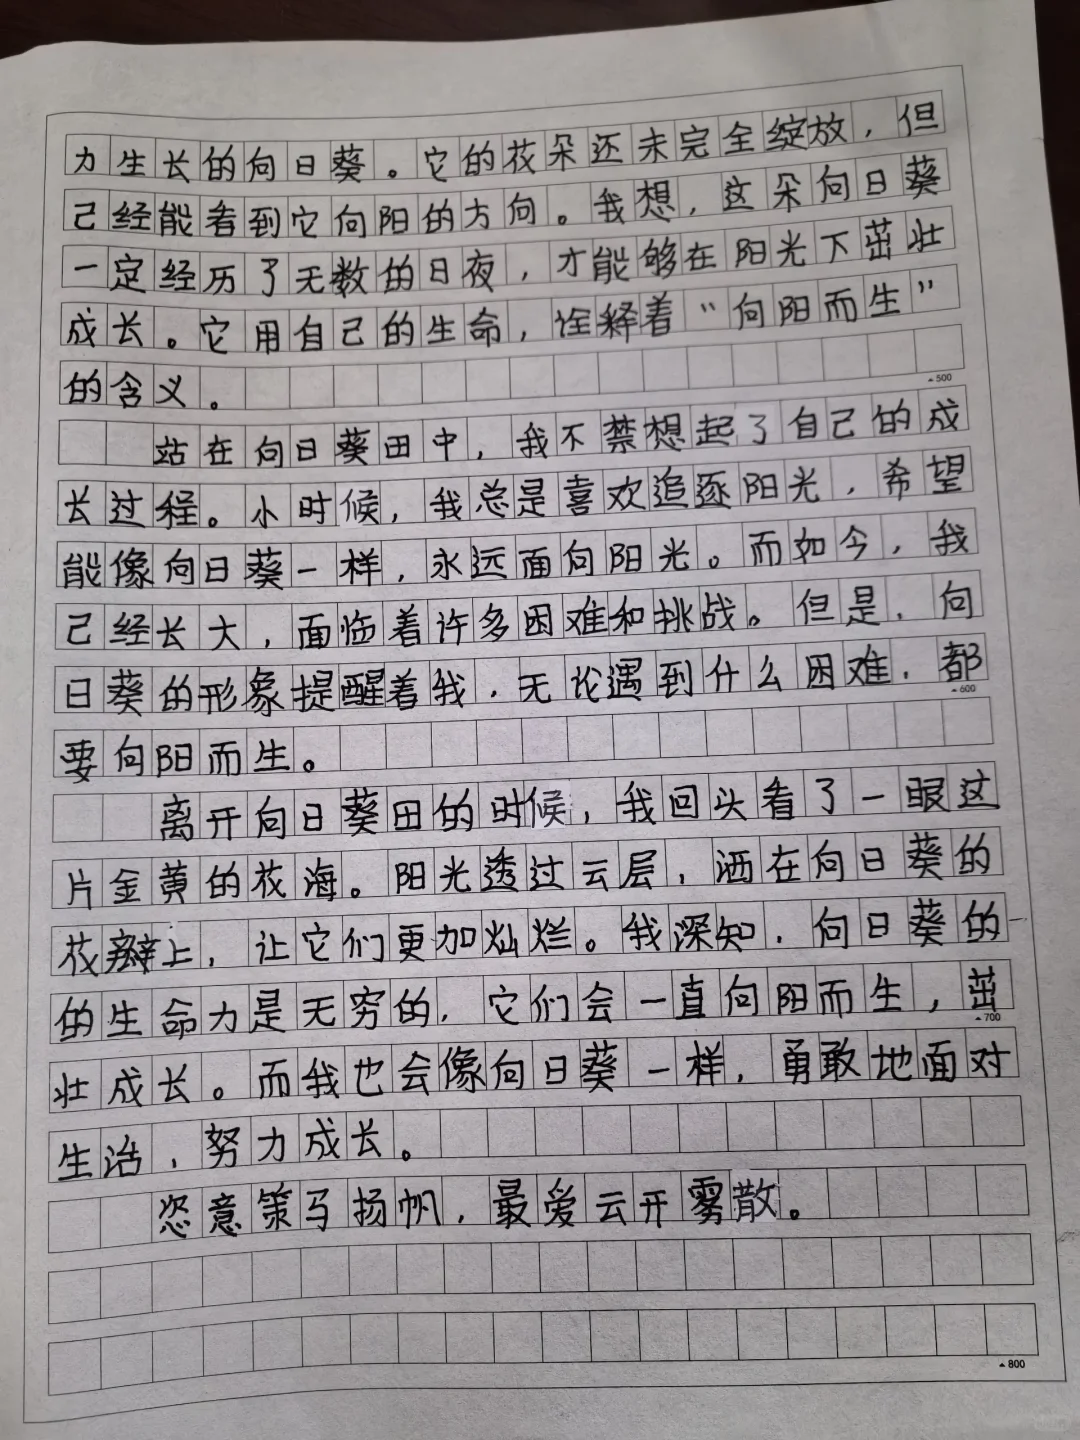 力生长的向日葵。它的花朵还未完全绽放，但
己经能看到它向阳的方向。我想，这朵向日葵
一定经历了无数的日夜，才能够在阳光下茁壮
成长。它用自己的生命，诠释着“向阳而生”
的含义。
▲500
站在向日葵田中，我不禁想起了自己的成
长过程。小时候，我总是喜欢追逐阳光，希望
能像向日葵一样，永远面向阳光。而如今，我
己经长大，面临着许多困难和挑战。但是，向
日葵的形象提醒着我，无论遇到什么困难，都
▲600
要向阳而生。
离开向日葵田的时候，我回头看了一眼这
片金黄的花海。阳光透过云层，洒在向日葵的
花瓣上，让它们更加灿烂。我深知，向日葵的
的生命力是无穷的，它们会一直向阳而生，茁
▲700
壮成长。而我也会像向日葵一样，勇敢地面对
生活，努力成长。
恣意策马扬帆，最爱云开雾散。
▲800